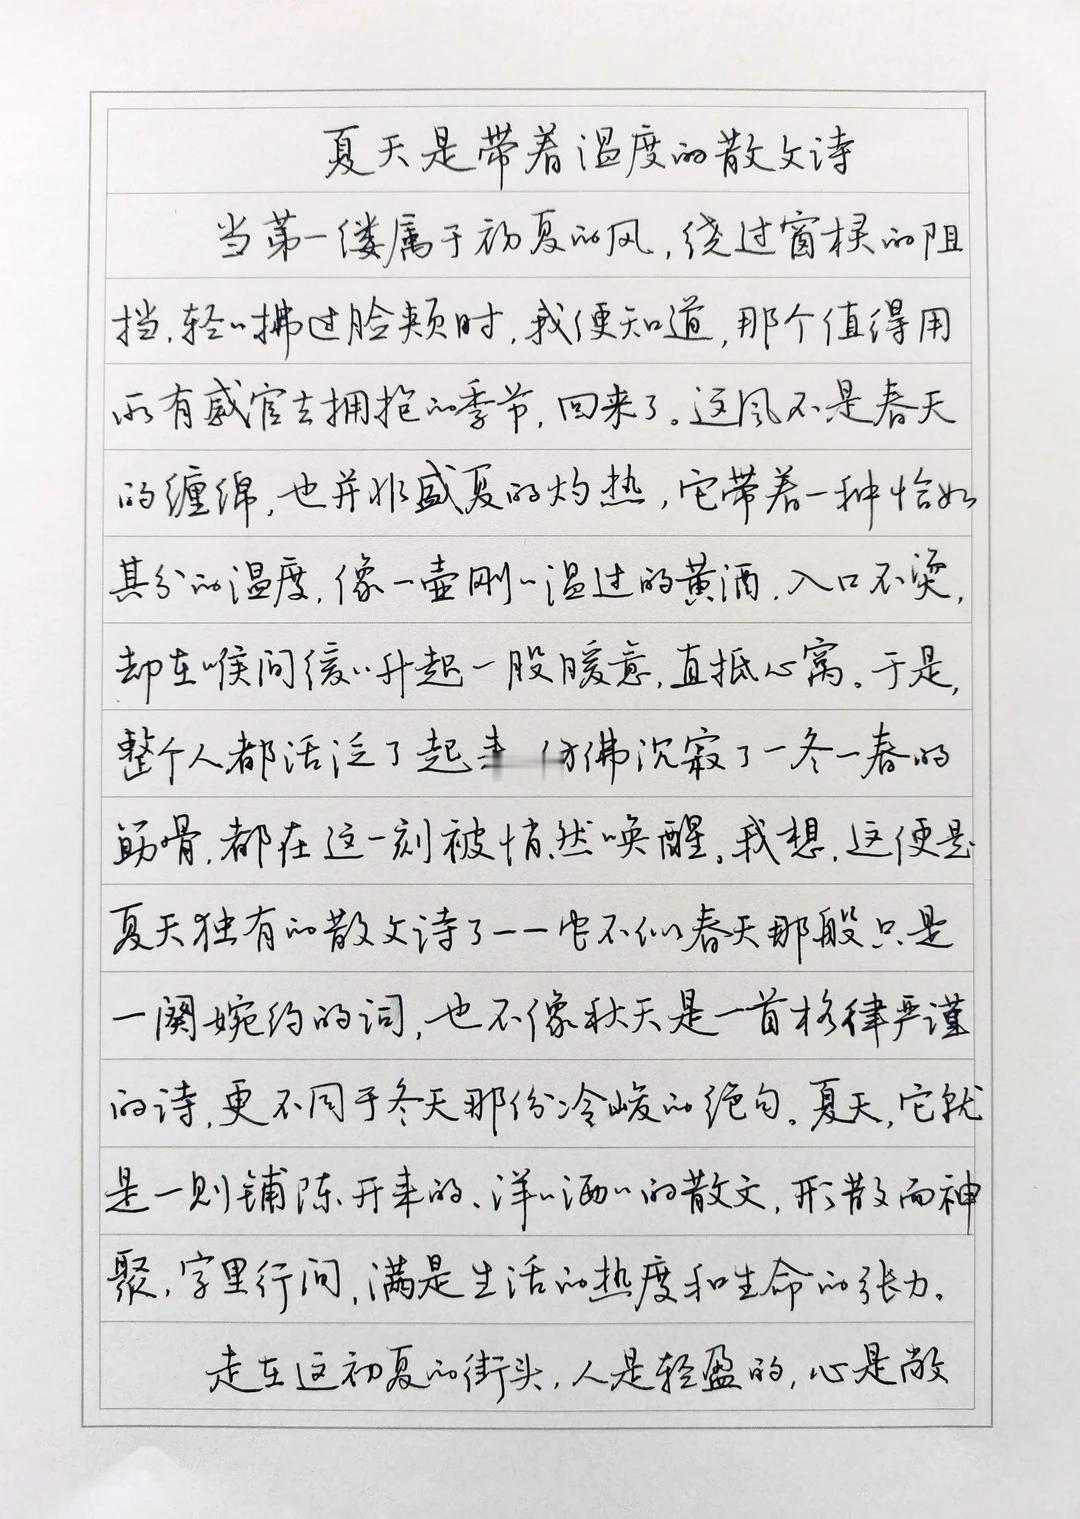 夏天是带着温度的散文诗
当第一缕属于初夏的风,绕过窗棂的阻
挡,轻轻拂过脸颊时,我便知道,那个值得用
所有感官去拥抱的季节,回来了。这风不是春天
的缠绵,也并非盛夏的灼热,它带着一种恰如
其分的温度,像一壶刚刚温过的黄酒,入口不烫,
却在喉间缓缓升起一股暖意,直抵心窝。于是,
整个人都活泛了起来 仿佛沉寂了一冬一春的
筋骨,都在这一刻被悄然唤醒。我想,这便是
夏天独有的散文诗了——它不似春天那般只是
一阕婉约的词,也不像秋天是一首格律严谨
的诗,更不同于冬天那份冷峻的绝句。夏天,它就
是一则铺陈开来的、洋洋洒洒的散文,形散而神
聚,字里行间,满是生活的热度和生命的张力。
走在这初夏的街头,人是轻盈的,心是敞